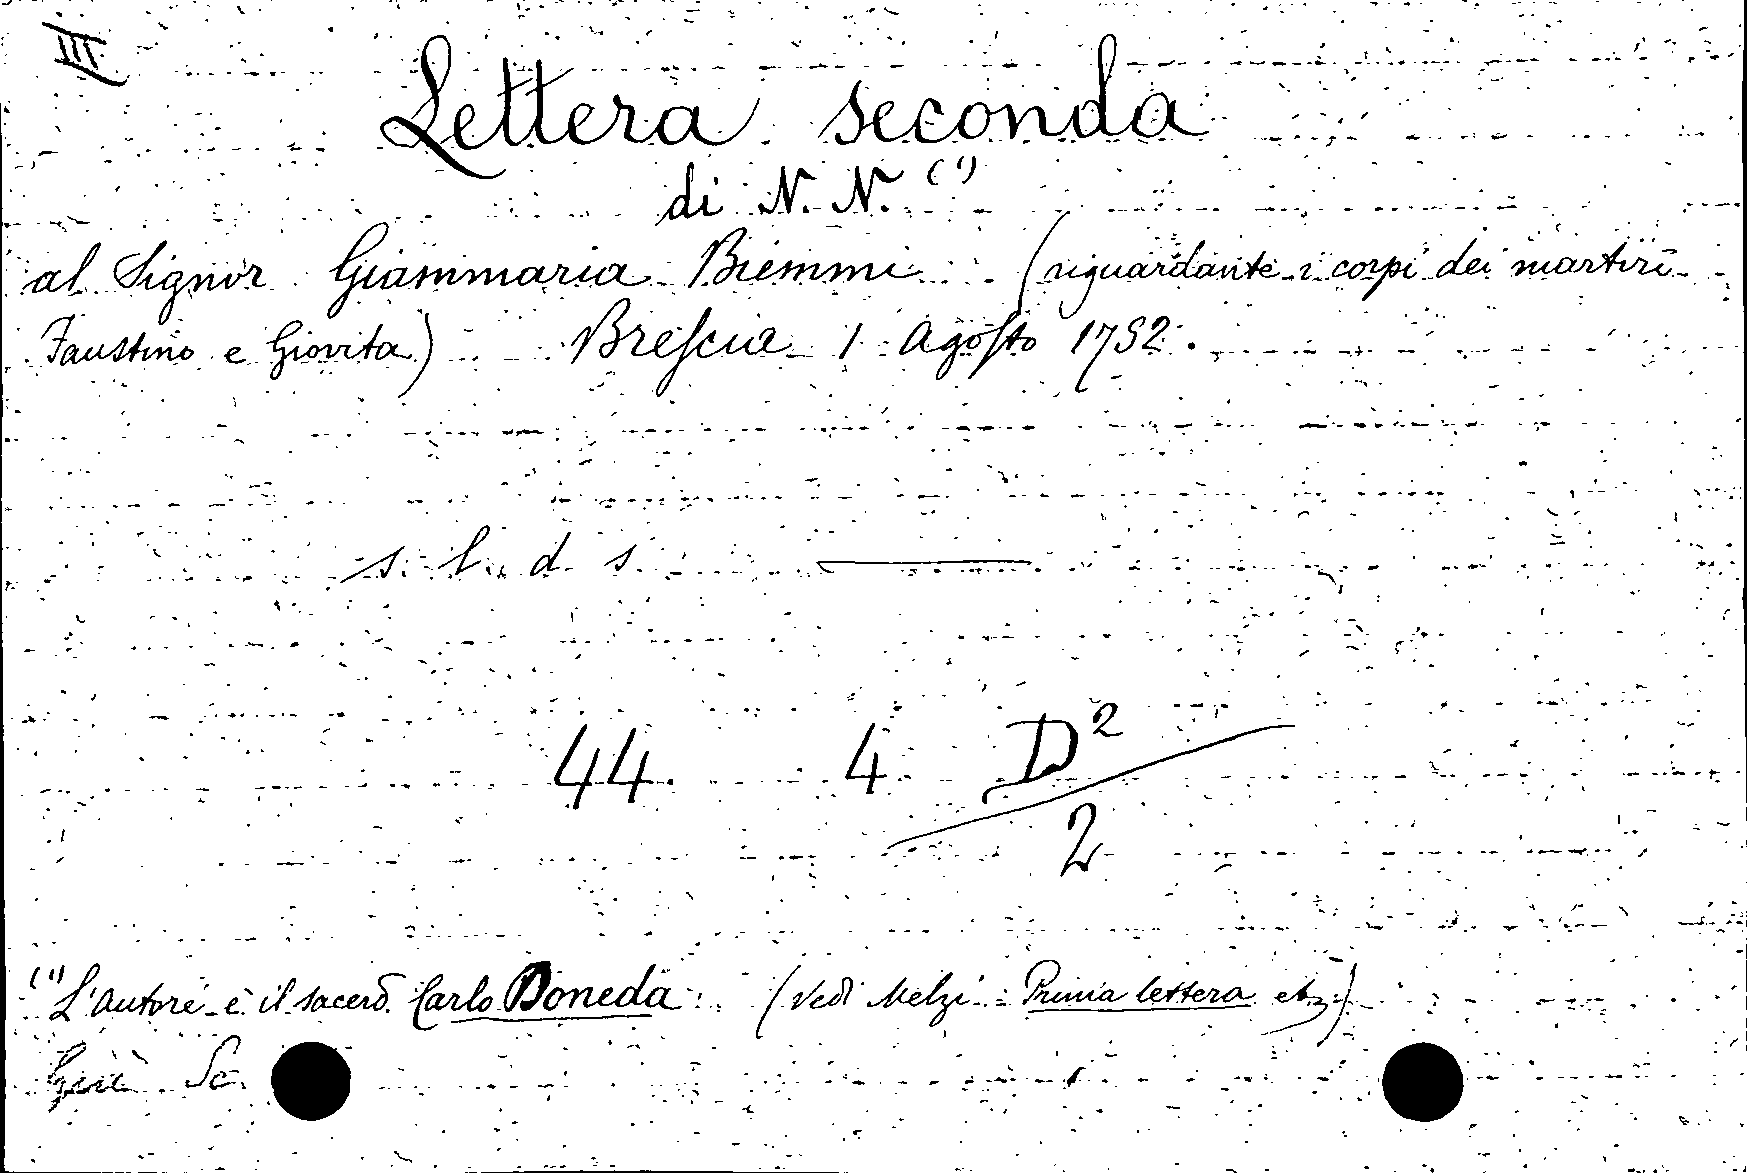 III
Lettera seconda
di N. N. (1)
al Signor Giammaria Biemmi (riguardante i corpi dei martiri
Faustino e Giovita) Brescia 1 Agosto 1752.
s. l. d. s.
44. 4. D²
2
(1) L'autore è il sacerd. Carlo Doneda (Vedi Melzi - Prima lettera etz)
Già Sc.